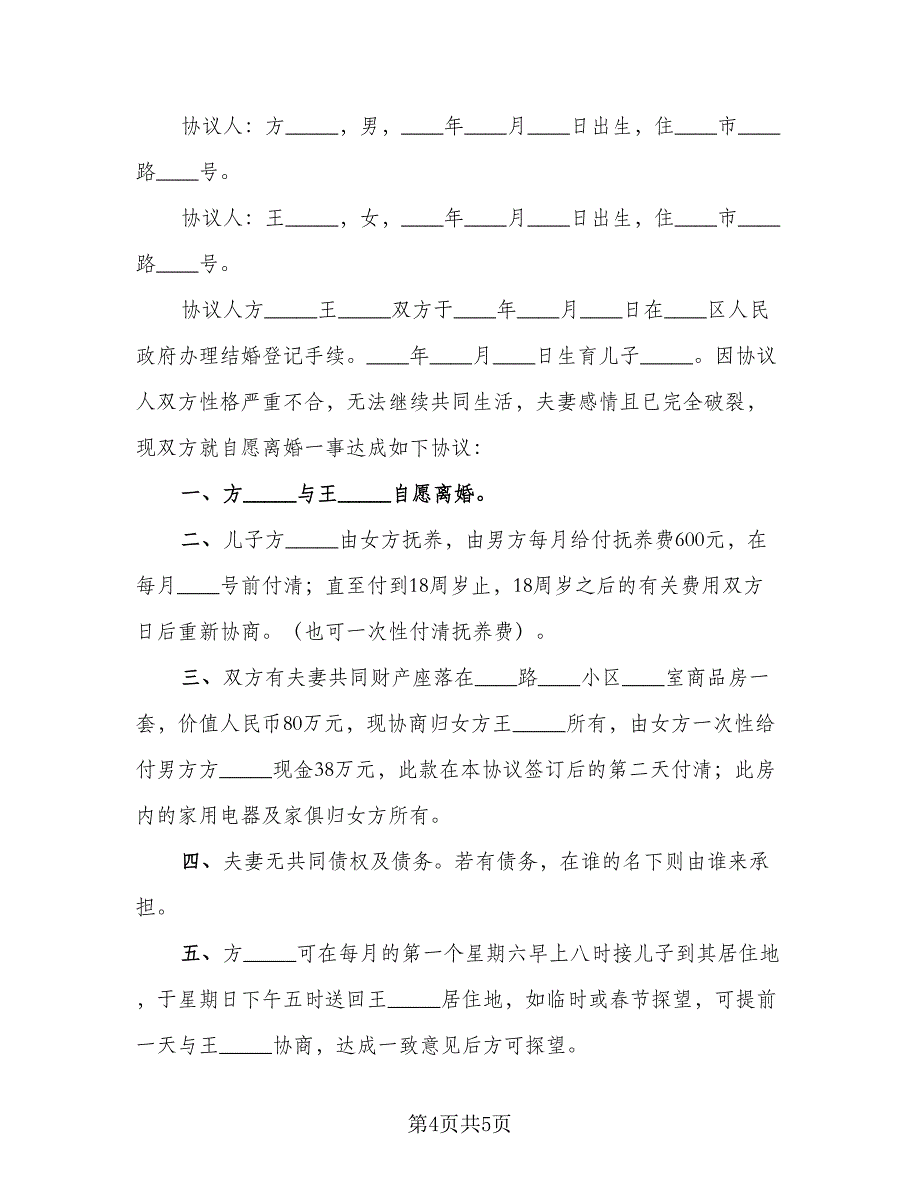 协议人：方_____，男，____年____月____日出生，住____市____
路____号。
协议人：王_____，女，____年____月____日出生，住____市____
路____号。
协议人方_____王_____双方于____年____月____日在____区人民
政府办理结婚登记手续。____年____月____日生育儿子_____。因协议
人双方性格严重不合，无法继续共同生活，夫妻感情且已完全破裂，
现双方就自愿离婚一事达成如下协议：
一、方_____与王_____自愿离婚。
二、儿子方_____由女方抚养，由男方每月给付抚养费600元，在
每月____号前付清；直至付到18周岁止，18周岁之后的有关费用双方
日后重新协商。（也可一次性付清抚养费）。
三、双方有夫妻共同财产座落在____路____小区____室商品房一
套，价值人民币80万元，现协商归女方王_____所有，由女方一次性给
付男方方_____现金38万元，此款在本协议签订后的第二天付清；此房
内的家用电器及家俱归女方所有。
四、夫妻无共同债权及债务。若有债务，在谁的名下则由谁来承
担。
五、方_____可在每月的第一个星期六早上八时接儿子到其居住地
，于星期日下午五时送回王_____居住地，如临时或春节探望，可提前
一天与王_____协商，达成一致意见后方可探望。
第4页共5页